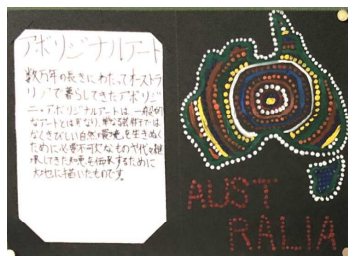 アボリジナルアート
数万年の長きにわたってオーストラ
リアで暮らしてきたアボリジ
ニ・アボリジナルアートは一般的
なアートとは異なり、単なる芸術ではなく
きびしい自然環境を生きぬく
ために必要不可欠なものや代々継
承してきた知恵を伝承するために
大地に描いたものです。
AUST
RALIA